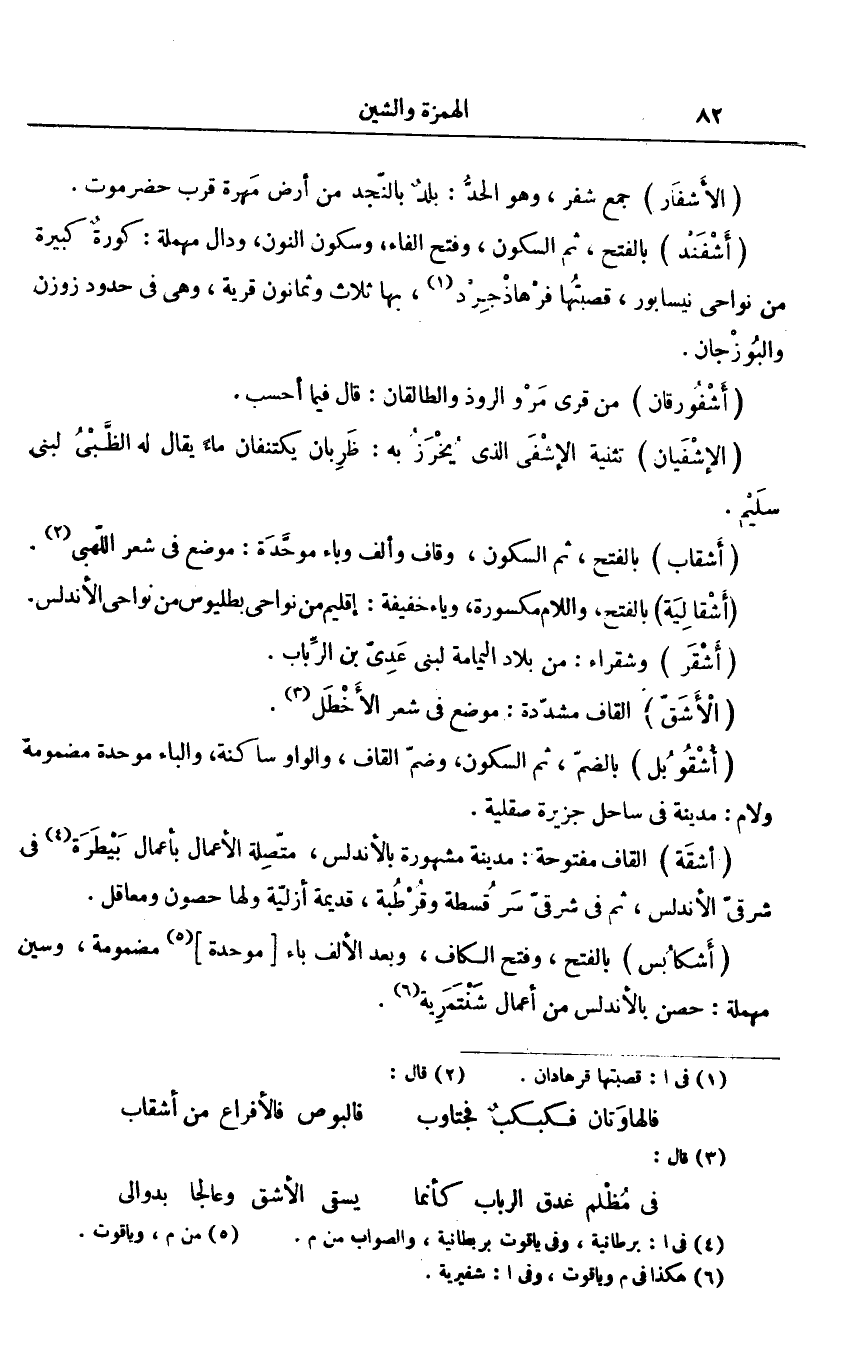 ٨٢ الهمزة والشين
( الأَشفَار ) جمع شفر ، وهو الحدُّ : بلدٌ بالنّجد من أرض مَهرة قرب حضرموت .
( أَشْفَنْد ) بالفتح ، ثم السكون ، وفتح الفاء، وسكون النون، ودال مهملة : كورةٌ كبيرة
من نواحى نيسابور ، قصبتُها فرْهاذْجِرْد(١) ، بها ثلاث وثمانون قرية ، وهى فى حدود زوزن
والبُوزْجان .
( أَشْفُورقان ) من قرى مَرْو الروذ والطالقان : قال فيما أحسب .
( الإشْفَيان ) تثنية الإشْفَى الذى يُخْرَزُ به : ظَرِبان يكتنفان ماءً يقال له الظَّبْىُ لبنى
سلَيْم .
( أَشقاب ) بالفتح ، ثم السكون ، وقاف وألف وباء موحَّدَة : موضع فى شعر اللّهبى(٢) .
(أَشْقالِيَة) بالفتح، واللام مكسورة، وياء خفيفة : إقليم من نواحى بطليوس من نواحى الأندلس.
( أَشْقَر ) وشقراء : من بلاد اليمامة لبنى عَدِىّ بن الرِّباب .
( الْأَشَقّ ) القاف مشدّدة : موضع فى شعر الأَخْطَل(٣) .
( أُشْقُوبُل ) بالضمّ ، ثم السكون، وضمّ القاف ، والواو ساكنة، والباء موحدة مضمومة
ولام : مدينة فى ساحل جزيرة صقلية .
( أشقَة ) القاف مفتوحة : مدينة مشهورة بالأندلس ، متّصلة الأعمال بأعمال بَيْطَرَة(٤) فى
شرقىّ الأندلس ، ثم فى شرقىّ سَرقُسطة وقُرْطُبة ، قديمة أزليّة ولها حصون ومعاقل .
( أَشكابُس ) بالفتح ، وفتح الكاف ، وبعد الألف باء [ موحدة ](٥) مضمومة ، وسين
مهملة : حصن بالأندلس من أعمال شَنْتَمَرِية(٦) .
(١) فى ا : قصبتها قرهادان . (٢) قال :
فالهاوَتان فكبكبٌ فجتاوب فالبوص فالأفراع من أشقاب
(٣) قال :
فى مُظْلم غدق الرباب كأنما يسقى الأشق وعالجا بدوالى
(٤) فى ا : برطانية ، وفى ياقوت بربطانية ، والصواب من م . (٥) من م ، وياقوت .
(٦) هكذا فى م وياقوت ، وفى ا : شفيرية .